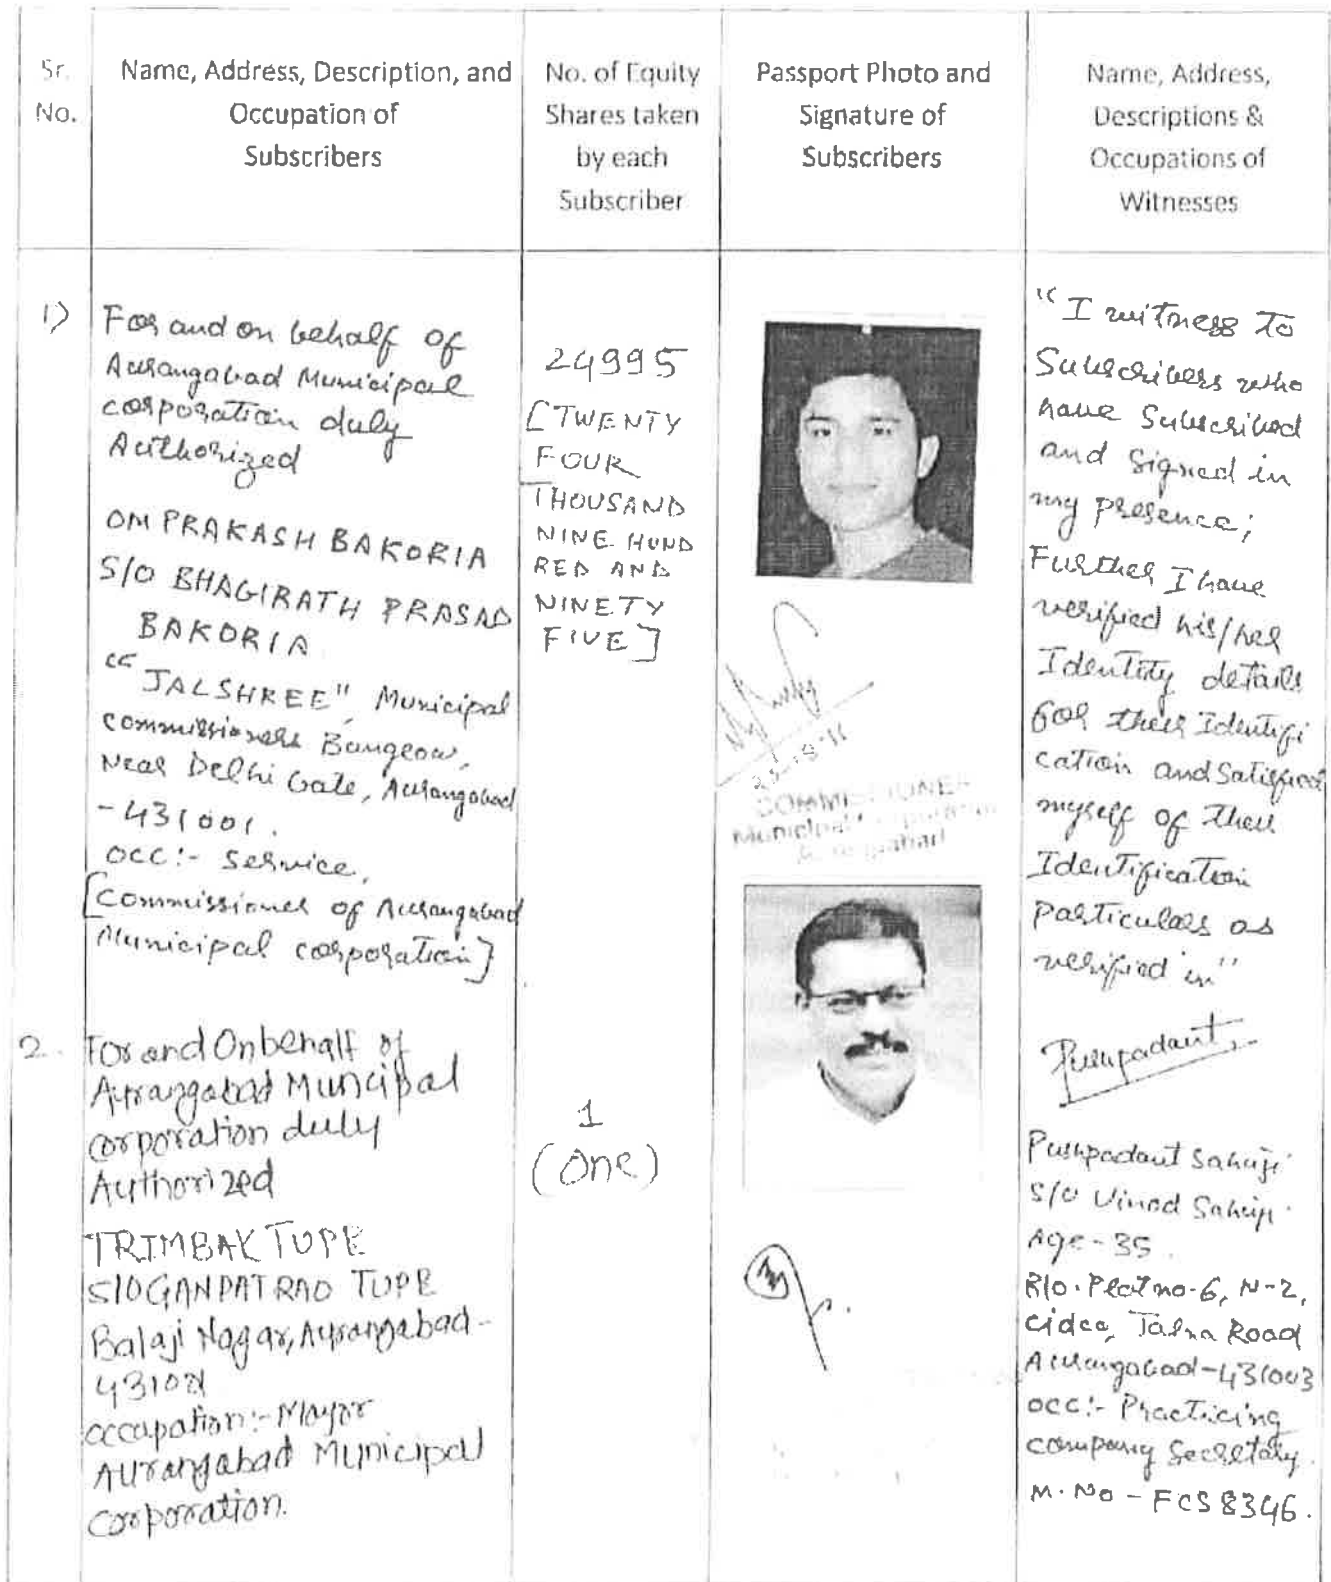 Sr. No.
Name, Address, Description, and
Occupation of
Subscribers
No. of Equity
Shares taken
by each
Subscriber
Passport Photo and
Signature of
Subscribers
Name, Address,
Descriptions &
Occupations of
Witnesses
1)
For and on behalf of
Aurangabad Municipal
corporation duly
Authorized
OM PRAKASH BAKORIA
S/O BHAGIRATH PRASAD
BAKORIA
"JALSHREE", Municipal
commissioners Bangeow,
Near Delhi Gate, Aurangabad
-431001.
OCC:- Service,
[Commissioner of Aurangabad
Municipal corporation]
24995
[TWENTY
FOUR
THOUSAND
NINE HUND
RED AND
NINETY
FIVE]
COMMISSIONER
Municipal Corporation
"I witness to
Subscribers who
have Subscribed
and Signed in
my presence;
Further I have
verified his/her
Identity details
for their Identifi
cation and Satisfied
myself of their
Identification
particulars as
verified in"
Pushpadant
Pushpadant Sahuji
S/O Vinod Sahuji
Age - 35.
R/o. Plot no-6, N-2,
Cidco, Jalna Road
Aurangabad-431003
occ:- Practicing
company Secretary.
M. No - FCS 8346.
2.
For and Onbehalf of
Aurangabad Muncipal
corporation duly
Authorized
TRIMBAK TUPE
S/O GANPATRAO TUPE
Balaji Nagar, Aurangabad-
occupation:- Mayor
Aurangabad Municipal
Corporation.
1
(One)